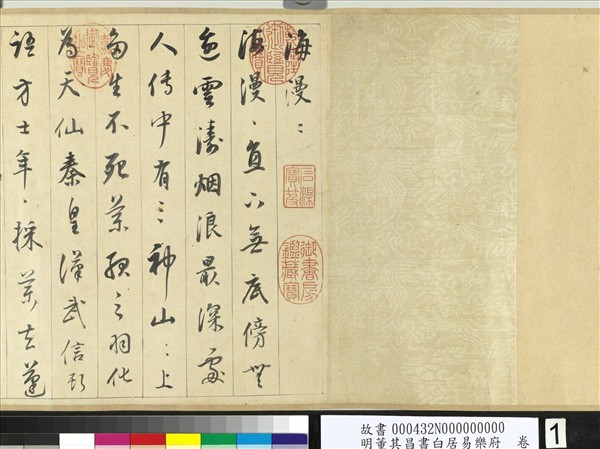 海漫〻
海漫〻直下無底傍無
邊雲濤烟浪最深處
人傳中有三神山〻上
多生不死藥服之羽化
為天仙秦皇漢武信此
語方士年〻採藥去蓬
石渠寶笈
御書房鑑藏寶
嘉慶御覽之寶
故書 000432N000000000
明董其昌書白居易樂府 卷
1